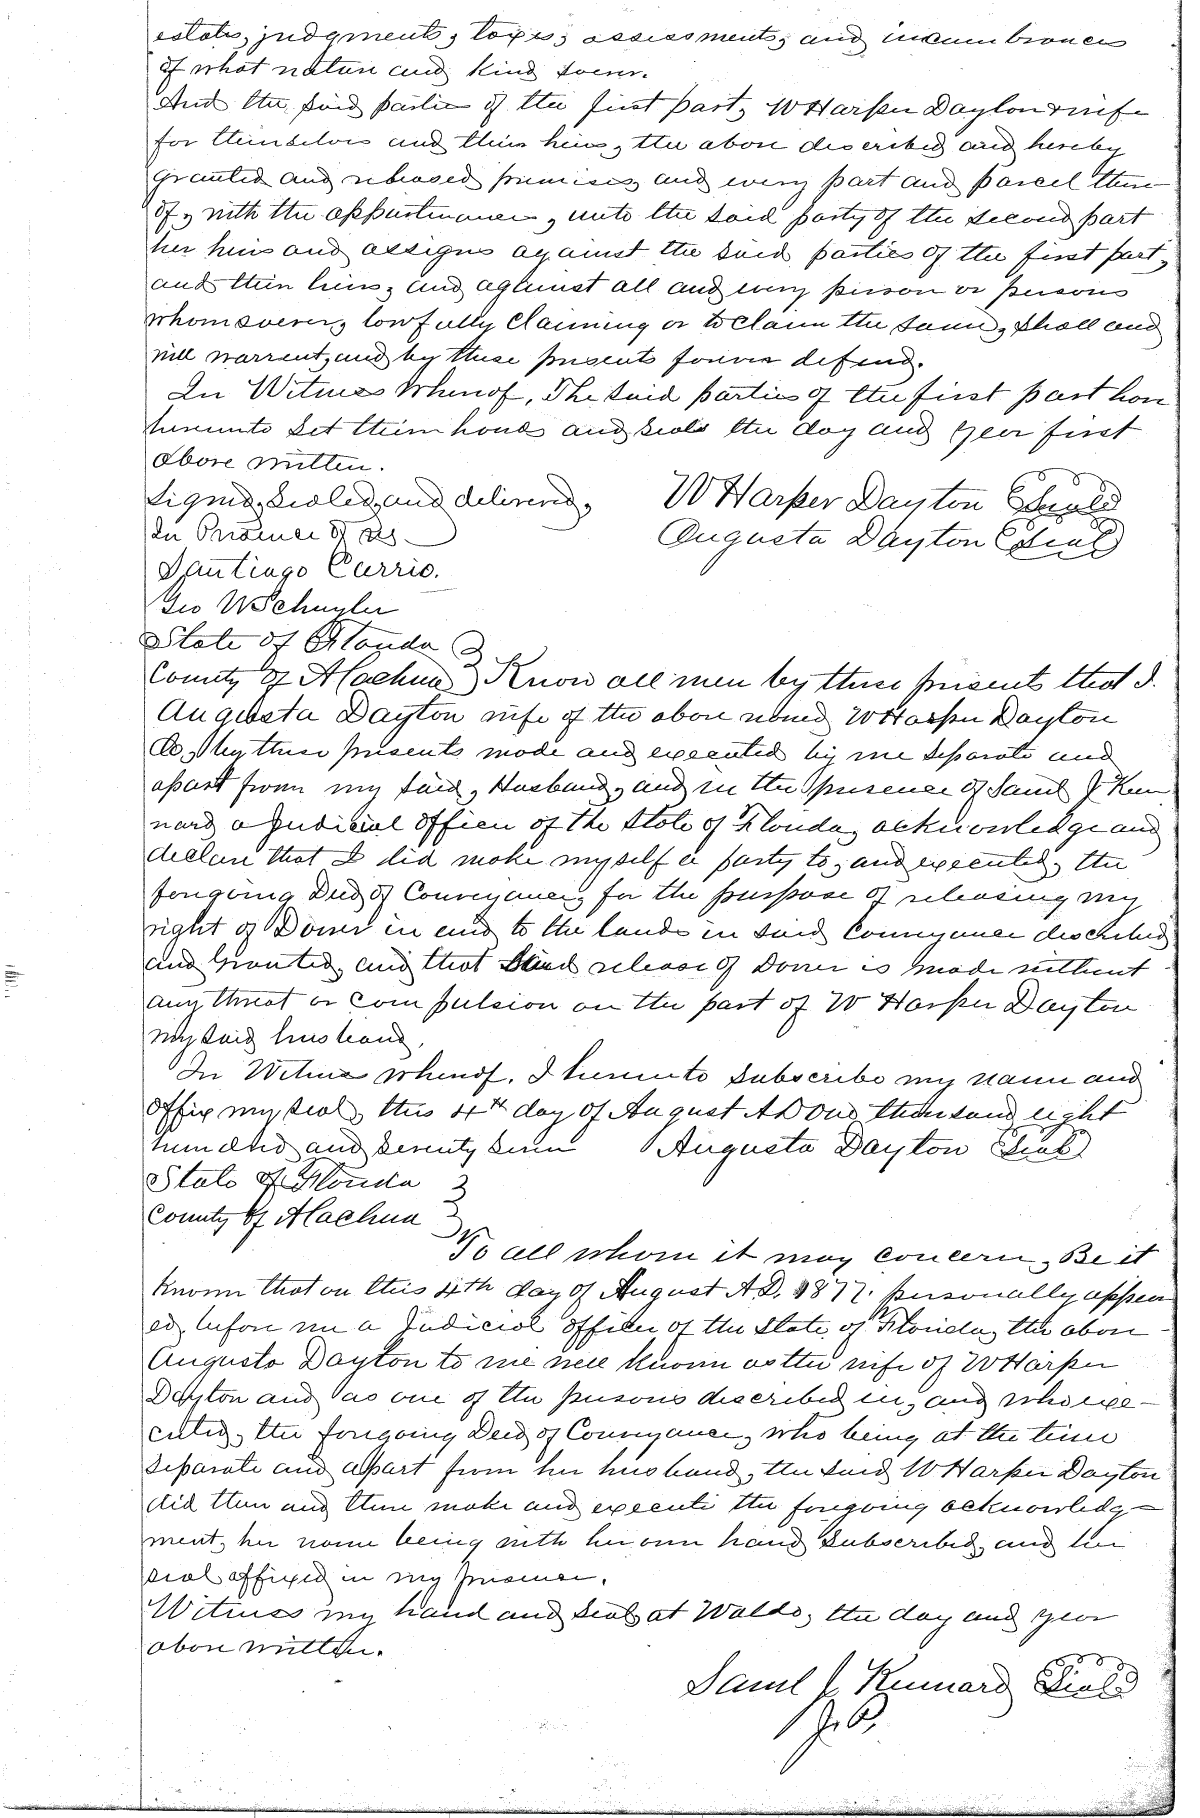 estates, judgments, taxes, assessments, and incumbrances
of what nature and kind soever.
And the said parties of the first part, W Harper Dayton & wife
for themselves and their heirs, the above described and hereby
granted and released premises, and every part and parcel there-
of, with the appurtinances, unto the said party of the second part
her heirs and assigns against the said parties of the first part,
and their heirs, and against all and every person or persons
whomsoever, lawfully claiming or to claim the same, shall and
will warrent, and by these presents forever defend.
In Witness Whereof, The said parties of the first part have
hereunto set their hands and seals the day and year first
above written.
Signed, Sealed, and delivered, W Harper Dayton Seal
In Presence of us Augusta Dayton Seal
Santiago Carrio.
Geo W Schuyler
State of Florida
County of Alachua Know all men by these presents that I.
Augusta Dayton wife of the above named W Harper Dayton
do, by these presents made and executed by me separate and
apart from my said, Husband, and in the presence of Saml J Ken
nard a Judicial officer of the State of Florida, acknowledge and
declare that I did make myself a party to, and executed, the
foregoing Deed of Conveyance, for the purpose of releasing my
right of Dower in and to the lands in said Conveyance described
and Granted, and that said release of Dower is made without
any threat or compulsion on the part of W Harper Dayton
my said husband.
In Witness whereof. I hereunto subscribe my name and
affix my seal, this 4th day of August A D One thousand eight
hundred and seventy seven Augusta Dayton Seal
State of Florida
County of Alachua
To all whom it may concern, Be it
known that on this 4th day of August A.D. 1877. personally appear
ed, before me a Judicial officer of the State of Florida, the above
Augusta Dayton to me well known as the wife of W Harper
Dayton and as one of the persons described in, and who exe-
cuted, the foregoing Deed of Conveyance, who being at the time
separate and apart from her husband, the said W Harper Dayton
did then and there make and execute the foregoing acknowledg-
ment, her name being with her own hand subscribed, and her
seal affixed in my presence.
Witness my hand and seal at Waldo, the day and year
above written.
Saml J Kennard Seal
J.P.